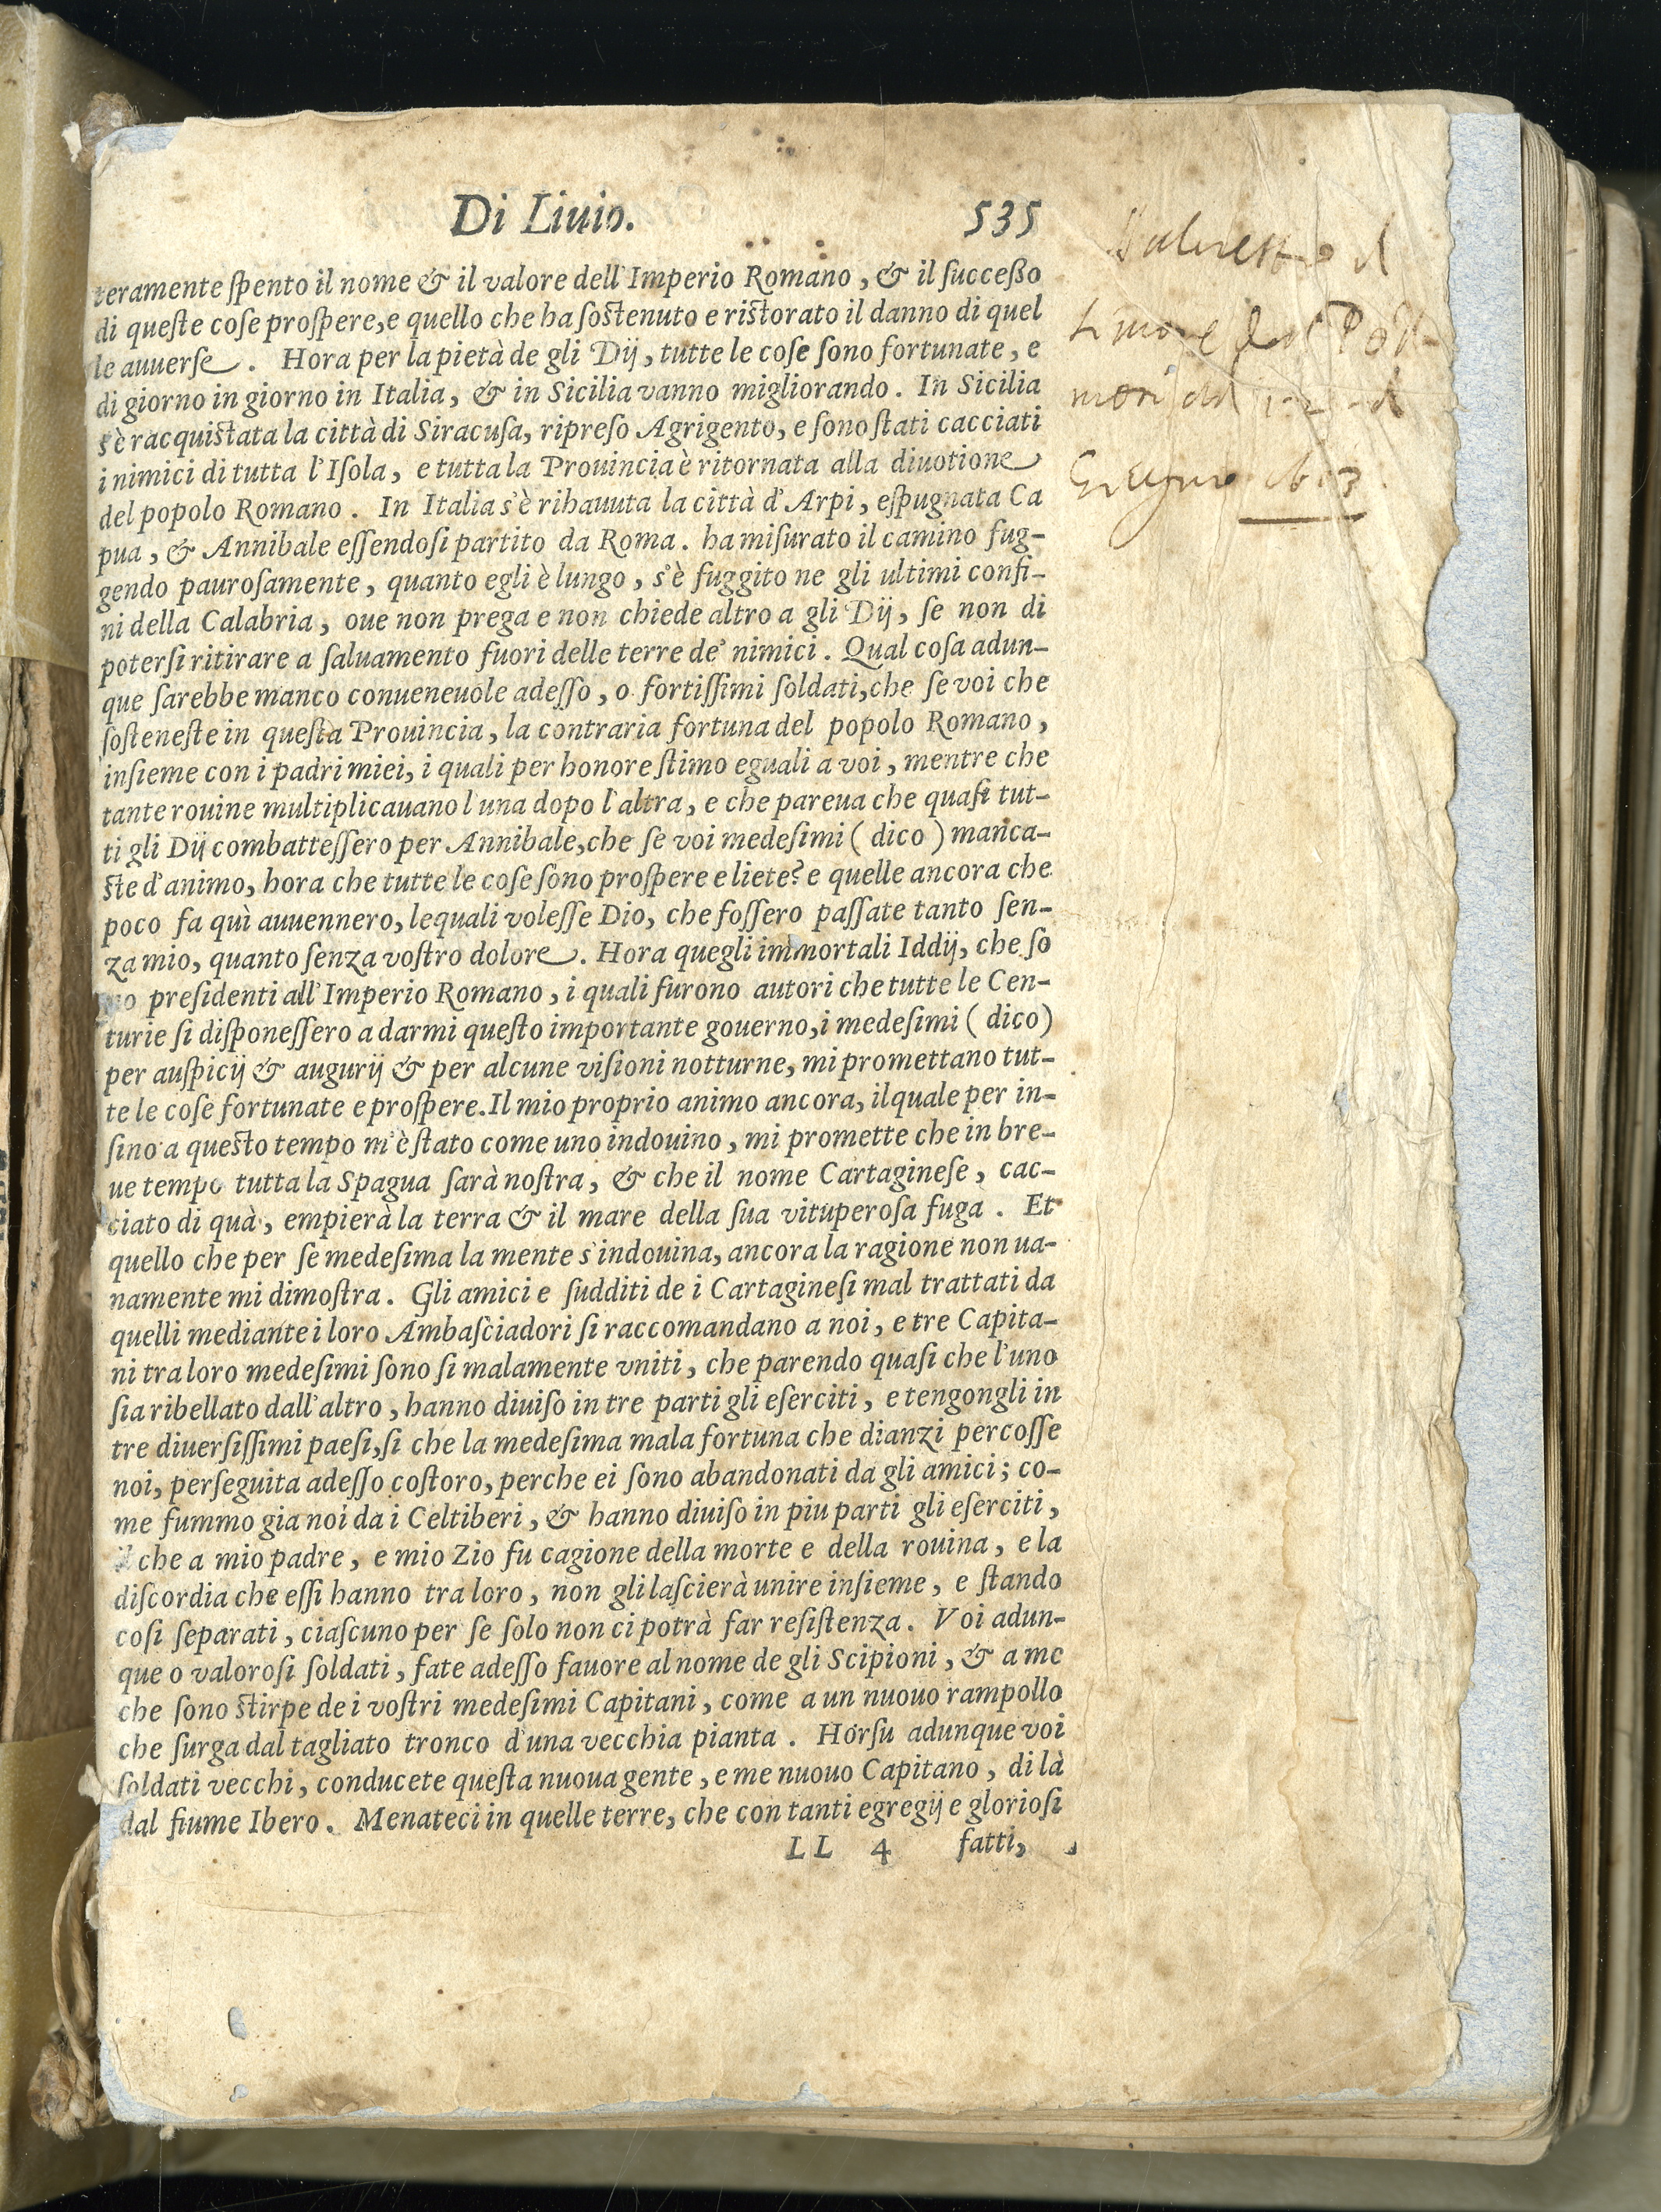 Di Liuio. 535
teramente ſpento il nome & il valore dell'Imperio Romano, & il ſucceßo
di queſte coſe proſpere, e quello che ha soſtenuto e riſtorato il danno di quel
le auuerſe. Hora per la pietà de gli Dij, tutte le coſe ſono fortunate, e
di giorno in giorno in Italia, & in Sicilia vanno migliorando. In Sicilia
s'è racquiſtata la città di Siracuſa, ripreſo Agrigento, e ſono ſtati cacciati
i nimici di tutta l'Iſola, e tutta la Prouincia è ritornata alla diuotione
del popolo Romano. In Italia s'è rihauuta la città d'Arpi, eſpugnata Ca
pua, & Annibale eſſendoſi partito da Roma. ha miſurato il camino fug-
gendo pauroſamente, quanto egli è lungo, s'è fuggito ne gli ultimi confi-
ni della Calabria, oue non prega e non chiede altro a gli Dij, ſe non di
poterſi ritirare a ſaluamento fuori delle terre de' nimici. Qual coſa adun-
que ſarebbe manco conueneuole adeſſo, o fortiſſimi ſoldati, che ſe voi che
ſoſteneſte in queſta Prouincia, la contraria fortuna del popolo Romano,
inſieme con i padri miei, i quali per honore ſtimo eguali a voi, mentre che
tante rouine multiplicauano l'una dopo l'altra, e che pareua che quaſi tut-
ti gli Dij combatteſſero per Annibale, che ſe voi medeſimi (dico) manca-
ſte d'animo, hora che tutte le coſe ſono proſpere e liete? e quelle ancora che
poco fa quì auuennero, lequali voleſſe Dio, che foſſero paſſate tanto ſen-
za mio, quanto ſenza voſtro dolore. Hora quegli immortali Iddij, che ſo
no preſidenti all'Imperio Romano, i quali furono autori che tutte le Cen-
turie ſi diſponeſſero a darmi queſto importante gouerno, i medeſimi (dico)
per auſpicij & augurij & per alcune viſioni notturne, mi promettano tut-
te le coſe fortunate e proſpere. Il mio proprio animo ancora, ilquale per in-
ſino a queſto tempo m'è ſtato come uno indouino, mi promette che in bre-
ue tempo tutta la Spagua ſarà noſtra, & che il nome Cartagineſe, cac-
ciato di quà, empierà la terra & il mare della ſua vituperoſa fuga. Et
quello che per ſe medeſima la mente s'indouina, ancora la ragione non ua-
namente mi dimoſtra. Gli amici e ſudditi de i Cartagineſi mal trattati da
quelli mediante i loro Ambaſciadori ſi raccomandano a noi, e tre Capita-
ni tra loro medeſimi ſono ſi malamente vniti, che parendo quaſi che l'uno
ſia ribellato dall'altro, hanno diuiſo in tre parti gli eſerciti, e tengongli in
tre diuerſiſſimi paeſi, ſi che la medeſima mala fortuna che dianzi percoſſe
noi, perſeguita adeſſo coſtoro, perche ei ſono abandonati da gli amici; co-
me fummo gia noi da i Celtiberi, & hanno diuiſo in piu parti gli eſerciti,
il che a mio padre, e mio Zio fu cagione della morte e della rouina, e la
diſcordia che eſſi hanno tra loro, non gli laſcierà unire inſieme, e ſtando
coſi ſeparati, ciaſcuno per ſe ſolo non ci potrà far reſiſtenza. Voi adun-
que o valoroſi ſoldati, fate adeſſo fauore al nome de gli Scipioni, & a me
che ſono ſtirpe de i voſtri medeſimi Capitani, come a un nuouo rampollo
che ſurga dal tagliato tronco d'una vecchia pianta. Horſu adunque voi
ſoldati vecchi, conducete queſta nuoua gente, e me nuouo Capitano, di là
dal fiume Ibero. Menateci in quelle terre, che con tanti egregij e glorioſi
LL 4 fatti,